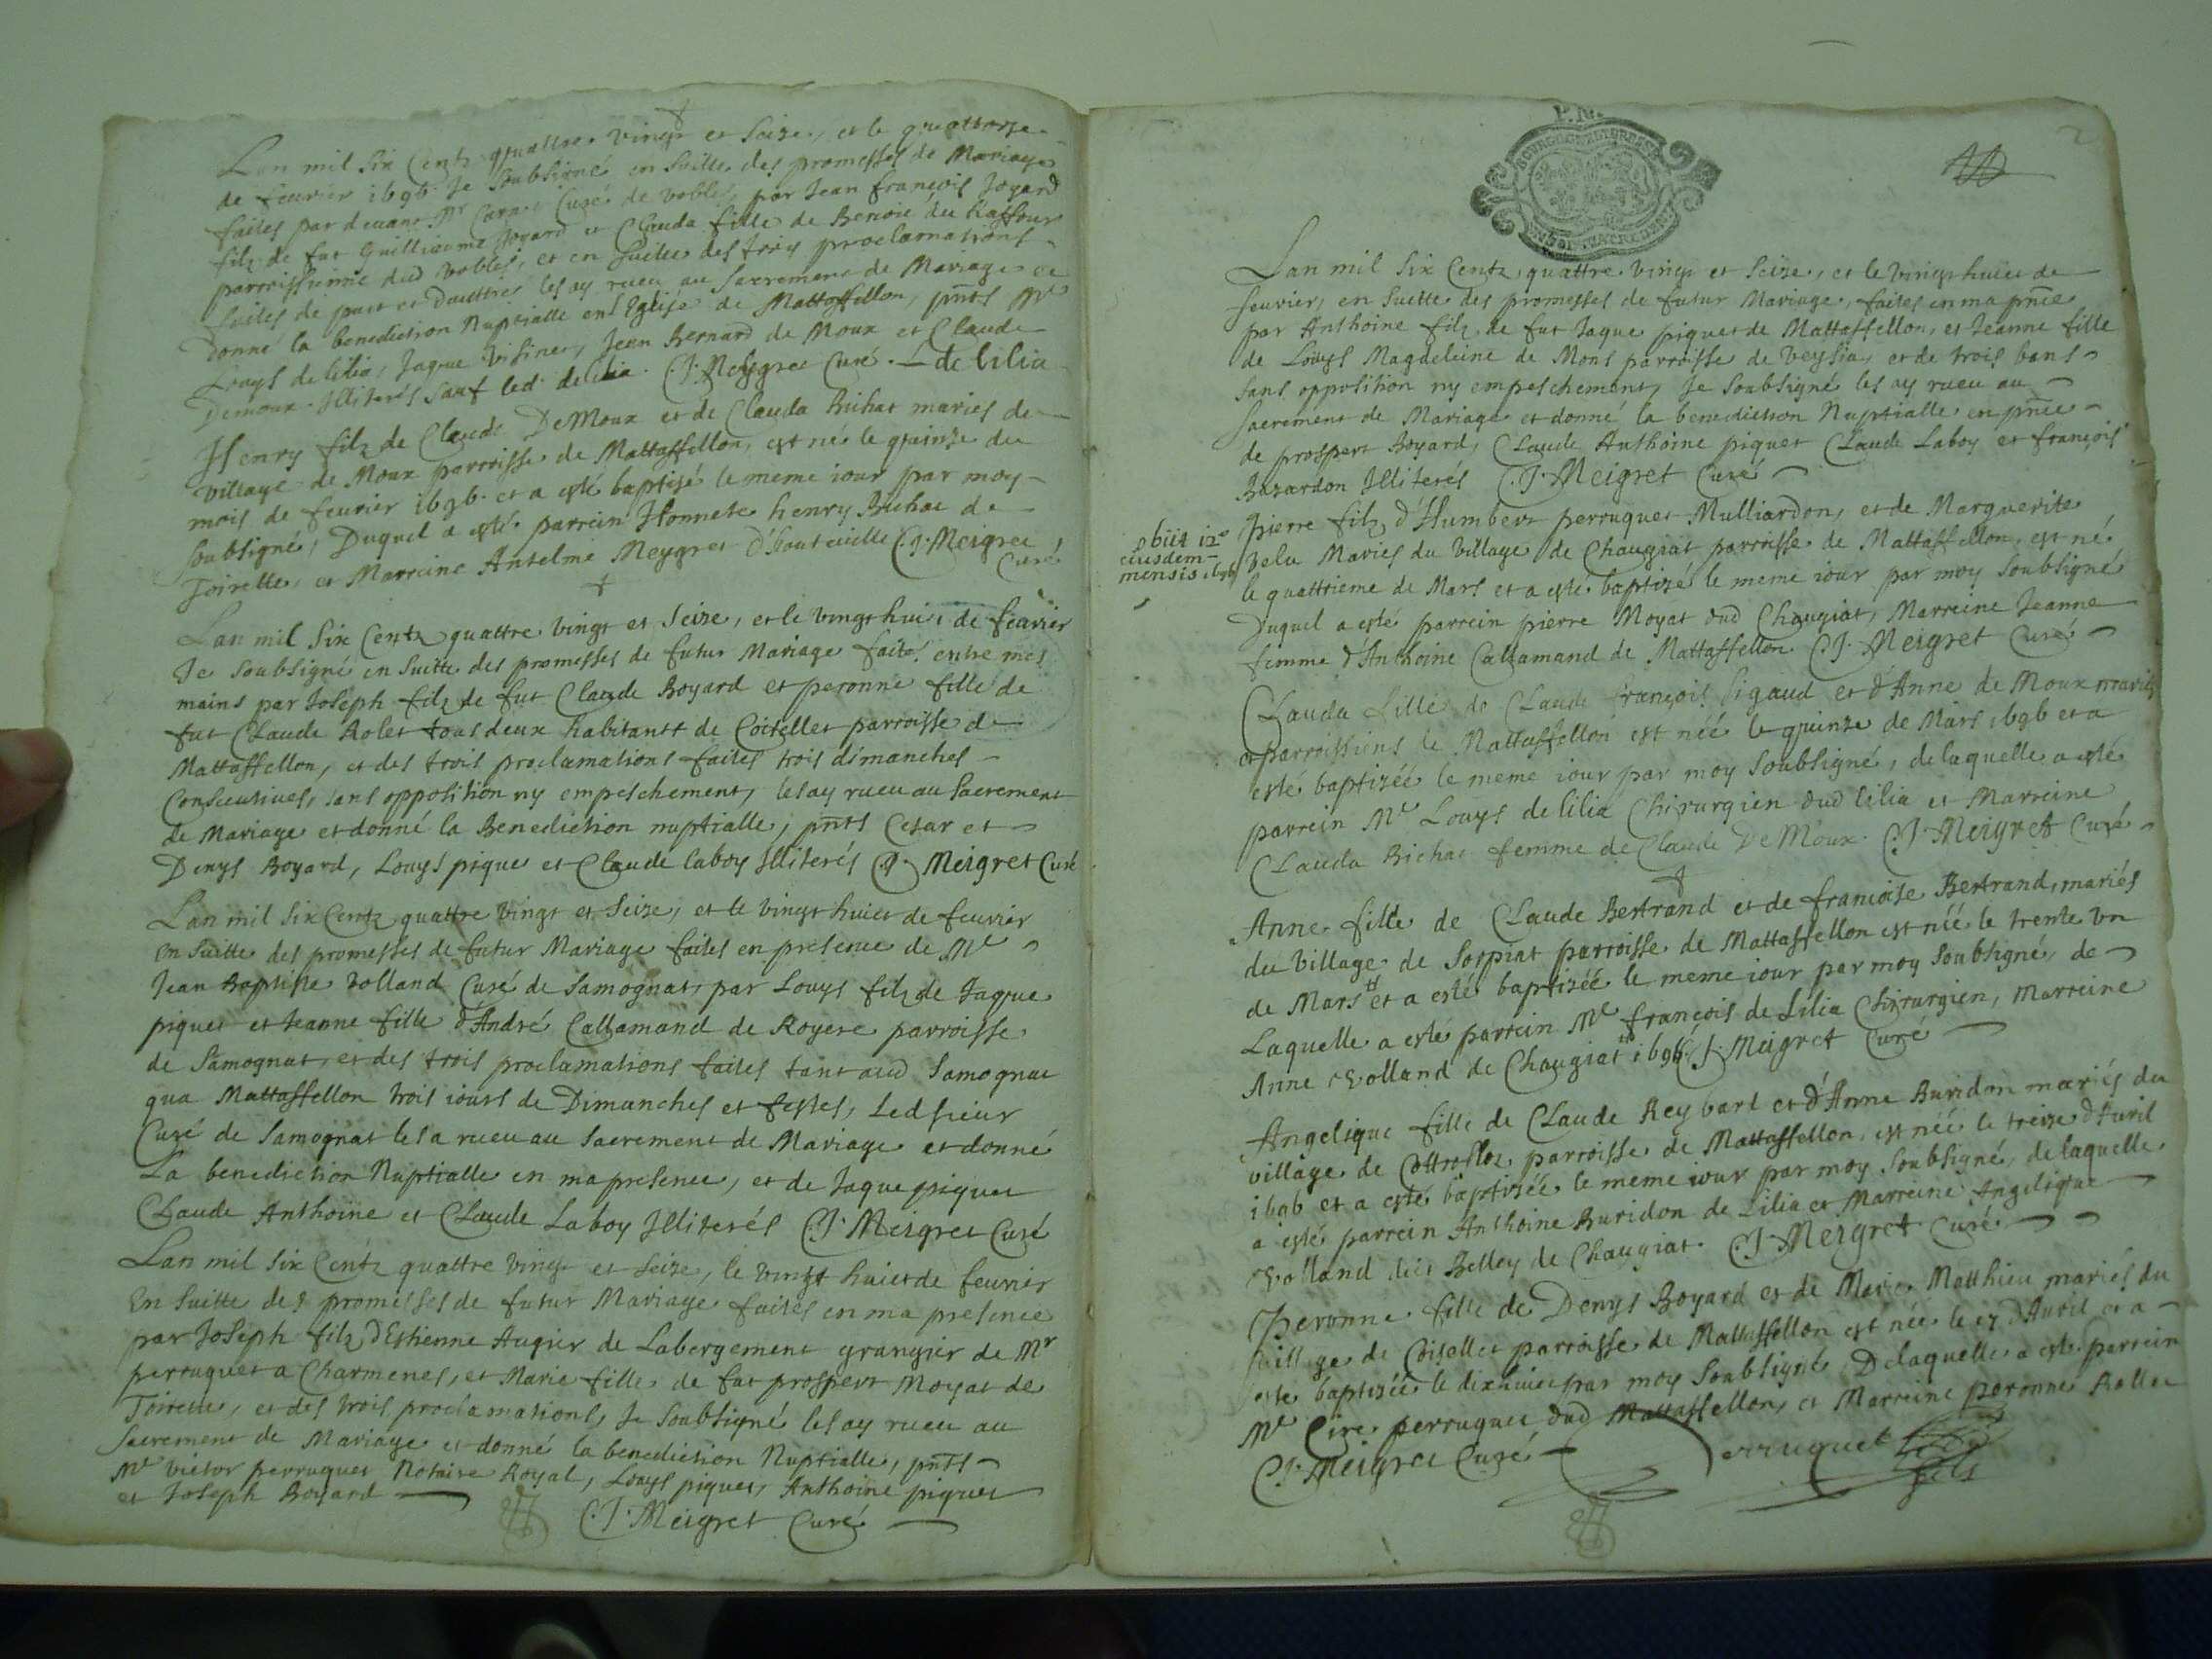 Lan mil six Centz quattre vingt et seize, et le quattorze
de feurier 1696. Je soubsigné en suitte des promesses de Mariage
faites par deuant Mr Curé de vobles, par Jean françois Joyard
filz de fut Guilliaume Joyard et Clauda fille de Benoit du
parroissienne dud vobles, et en suitte des trois proclamations
faites de part et dauttre les ay receu au Sacrement de Mariage et
Donné la benediction Nuptialle en lEglise de Mattaffellon, pnts Me
Louys de lilia, Jaque Jean Bernard de Moux et Claude
Demoux. Illiterés sauf led. de lilia. C. J. Meygret Curé. L de lilia
Henry filz de Claude DeMoux et de Clauda Bichat mariés de
village de Moux parroisse de Mattaffellon, est né le quinze du
mois de feurier 1696. et a esté baptisé le meme iour par moy
soubsigné, Duquel a esté parrein Honnete henry Bichat de
Toirette, et Marreine Antelme Meygret C. J. Meigret
Curé
Lan mil six Centz quattre vingt et seize, et le vingt huit de feurier
Je soubsigné en suitte des promesses de futur Mariage faites entre mes
mains par Joseph filz de fut Claude Boyard et peronne fille de
fut Claude Rolet tous deux habitants de Coisellet parroisse de
Mattaffellon, et des trois proclamations faites trois dimanches
Consecutives, sans opposition ny empeschement, les ay receu au Sacrement
de Mariage et donné la Benediction nuptialle, pnts Cesar et
Denys Boyard, Louys piquet et Claude laboy Illiterés C. J. Meigret Curé
Lan mil six Centz quattre vingt et seize, et le vingt huict de feurier
en suitte des promesses de futur Mariage faites en presence de Me
Jean Baptiste Volland Curé de Samognat, par Louys filz de Jaque
piquet et Jeanne fille d'André Callamand de Royere parroisse
de Samognat, et des trois proclamations faites tant aud Samognat
qua Mattaffellon trois iours de Dimanches et festes, Led sieur
Curé de Samognat les a receu au sacrement de Mariage et donné
La benediction Nuptialle en ma presence, et de Jaque piquet
Claude Anthoine et Claude Laboy Illiterés C. J. Meigret Curé
Lan mil six Centz quattre vingt et seize, le vingt huict de feurier
En suitte des promesses de futur Mariage faites en ma presence
par Joseph filz d'Estienne Augier de Labergement grangier de Mr
perruquet a Charmenes, et Marie fille de fut prospert Moyat de
Toirette, et des trois proclamations, Je soubsigné les ay receu au
sacrement de Mariage et donné la benediction Nuptialle, pnts
Me victor perruquet Notaire Royal, Louys piquet, Anthoine piquet
et Joseph Boyard
C. J. Meigret Curé
2
Lan mil six Centz quattre vingt et seize, et le vingt huict de
feurier, en suitte des promesses de futur Mariage, faites en ma pnce
par Anthoine filz de fut Jaque piquet de Mattaffellon, et Jeanne fille
de Louys Magdeleine de Mons parroisse de veysia, et de trois bans
sans opposition ny empeschement, Je soubsigné les ay receu au
sacrement de Mariage et donné la benediction Nuptialle en pnce
de prospert Boyard, Claude Anthoine piquet Claude Laboy et françois
Bazardon Illiterés C. J. Meigret Curé
obiit 12e
eiusdem
mensis 1696
pierre filz d'Humbert perruquet Mulliardon, et de Marguerite
velu Mariés du Village de Chaugiat parroisse de Mattaffellon, est né
le quattrieme de Mars et a esté baptizé le meme iour par moy soubsigné
Duquel a esté parrein pierre Moyat dud Chaugiat, Marreine Jeanne
femme d'Anthoine Callamand de Mattaffellon C. J. Meigret Curé
Clauda fille de Claude françois Sigaud et d'Anne de Moux mariés
et parroissiens de Mattaffellon est née le quinze de Mars 1696 et a
esté baptizée le meme iour par moy soubsigné, de laquelle a esté
parrein Me Louys de lilia Chirurgien dud lilia et Marreine
Clauda Bichat femme de Claude DeMoux. C. J. Meigret Curé
Anne fille de Claude Bertrand et de francoise Bertrand, mariés
du village de Sorpiat parroisse de Mattaffellon est née le trente un
de Mars et a esté baptizée le meme iour par moy soubsigné, de
Laquelle a esté parrein Me françois de Lilia Chirurgien, Marreine
Anne Volland de Chaugiat 1696. C. J. Meigret Curé
Angelique fille de Claude Reybart et d'Anne Buridon mariés du
village de parroisse de Mattaffellon, est née le treize d'Auril
1696 et a esté baptizée le meme iour par moy soubsigné, de laquelle
a esté parrein Anthoine Buridon de Lilia et Marreine Angelique
Volland dite Belley de Chaugiat. C. J. Meigret Curé
peronne fille de Denys Boyard et de Marie Matthieu mariés du
village de Coisellet parroisse de Mattaffellon est née le 17 d'Auril et a
esté baptizée le dixhuict par moy soubsigné Delaquelle a esté parrein
Me perruquet dud Mattaffellon, et Marreine peronne Rollet
C. J. Meigret Curé Perruquet
fils